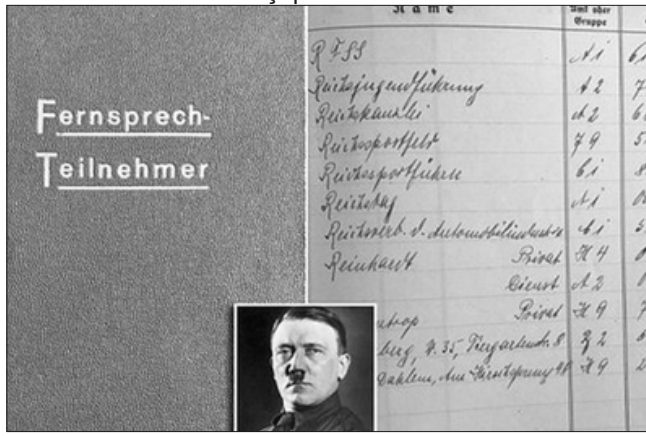 Fernsprech-
Teilnehmer
Name
Amt oder
Gruppe
RFSS A 1
Reichsjugendführung A 2 7
Reichskanzlei A 2 6
Reichssportfeld 5
Reichssportführer 8
Reichstag A 1
Reichsverb. d. Automobilindustrie 5
Reinhardt Privat H 4
Dienst A 2
Privat H 9 7
berg, W. 35, Tiergartenstr. 8 B 2
Dahlem, Am Hirschsprung H 9